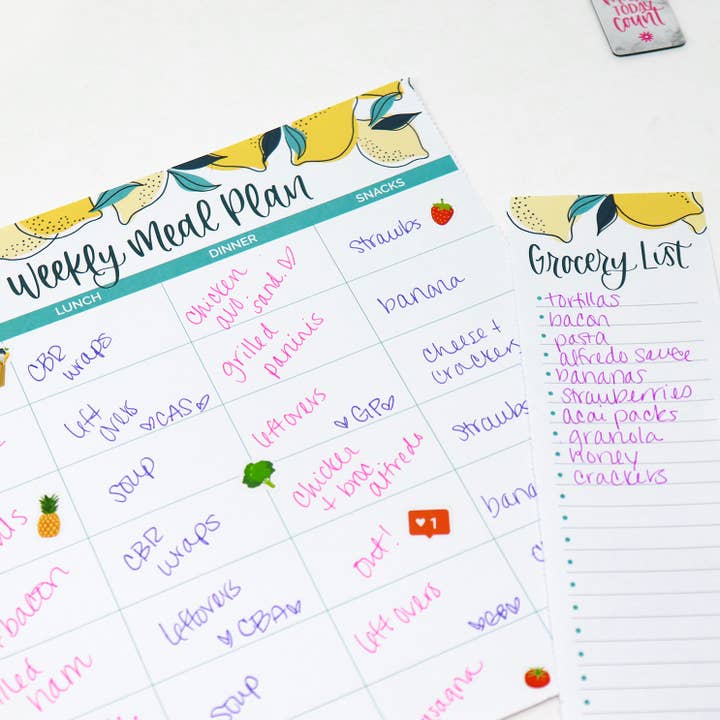 TODAY
count
Weekly Meal Plan
LUNCH
DINNER
SNACKS
CBR
wraps
chicken
avo
sand.
strawbs
left
overs
♡CAS♡
grilled
paninis
banana
soup
leftovers
♡GP♡
cheese +
crackers
CBR
wraps
chicken
+ broc
alfredo
strawbs
leftovers
♡CBA♡
out!
1
bacon
soup
left overs
ham
Grocery List
tortillas
bacon
pasta
alfredo sauce
bananas
strawberries
acai packs
granola
honey
crackers